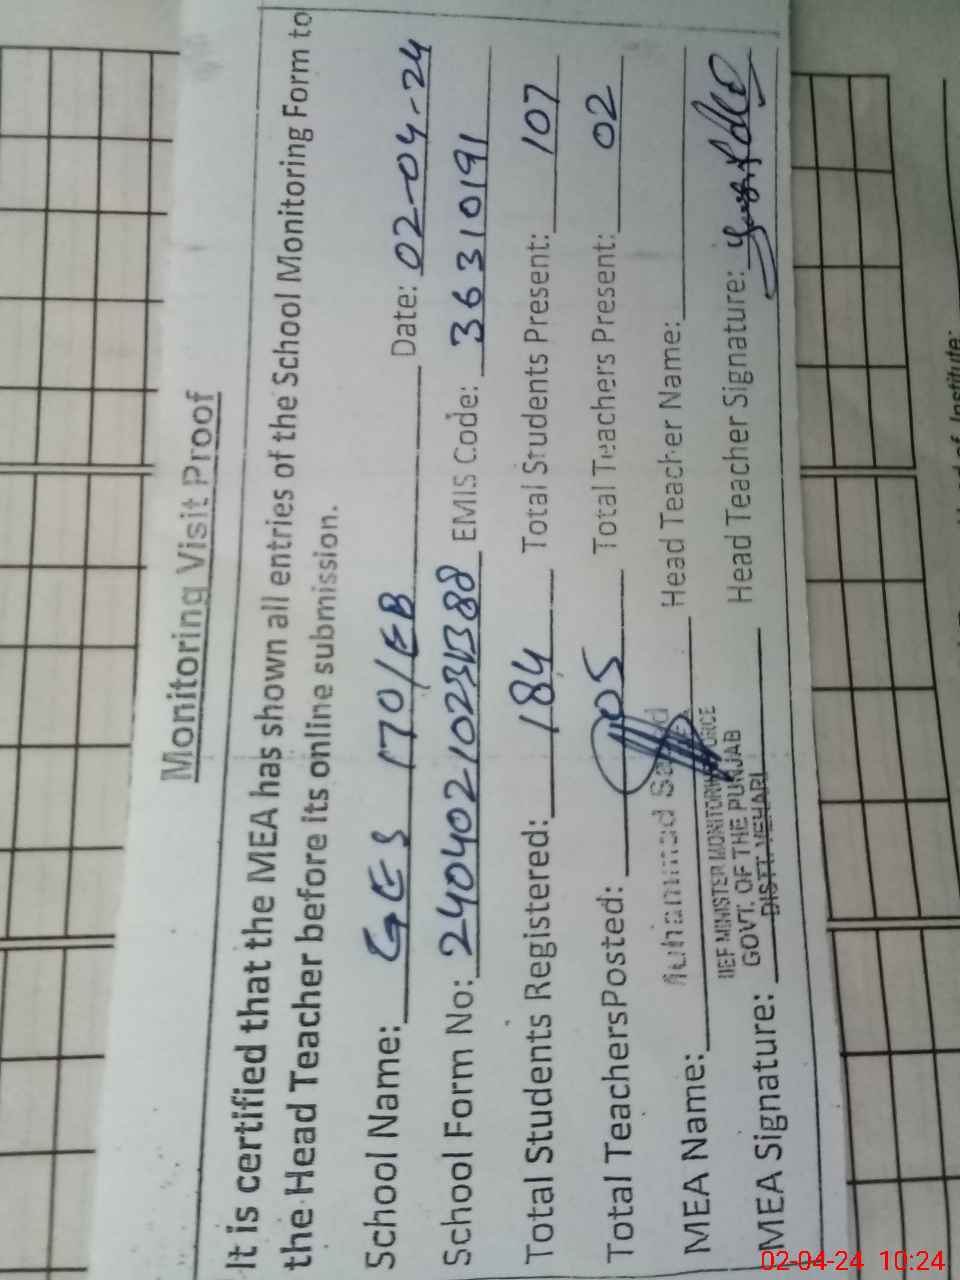 Monitoring Visit Proof
It is certified that the MEA has shown all entries of the School Monitoring Form to
the Head Teacher before its online submission.
School Name: GES 170/EB Date: 02-04-24
School Form No: EMIS Code: 36310191
Total Students Registered: 184 Total Students Present: 107
Total TeachersPosted: 05 Total Teachers Present: 02
MEA Name: Muhammad Head Teacher Name:
MINISTER MONITORING FORCE
GOVT. OF THE PUNJAB
DISTT. VEHARI
MEA Signature: Head Teacher Signature:
Institute:
02-04-24 10:24